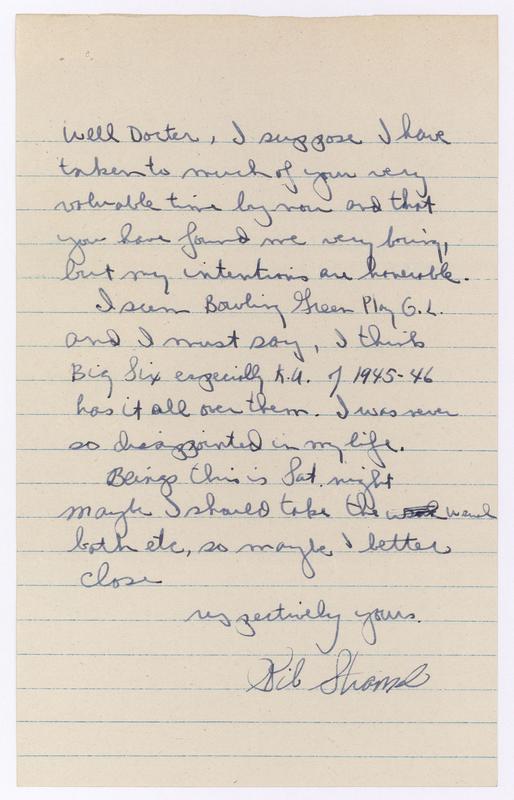 Well Docter, I suppose I have
taken to much of your very
valuable time by now and that
you have found me very boring,
but my intentions are honerable.
I seen Bowling Green Play G.L.
and I must say, I think
Big Six especially K.U. of 1945-46
has it all over them. I was never
so disappointed in my life.
Beings this is Sat. night
maybe I should take the
both etc, so maybe I better
close
respectively yours.